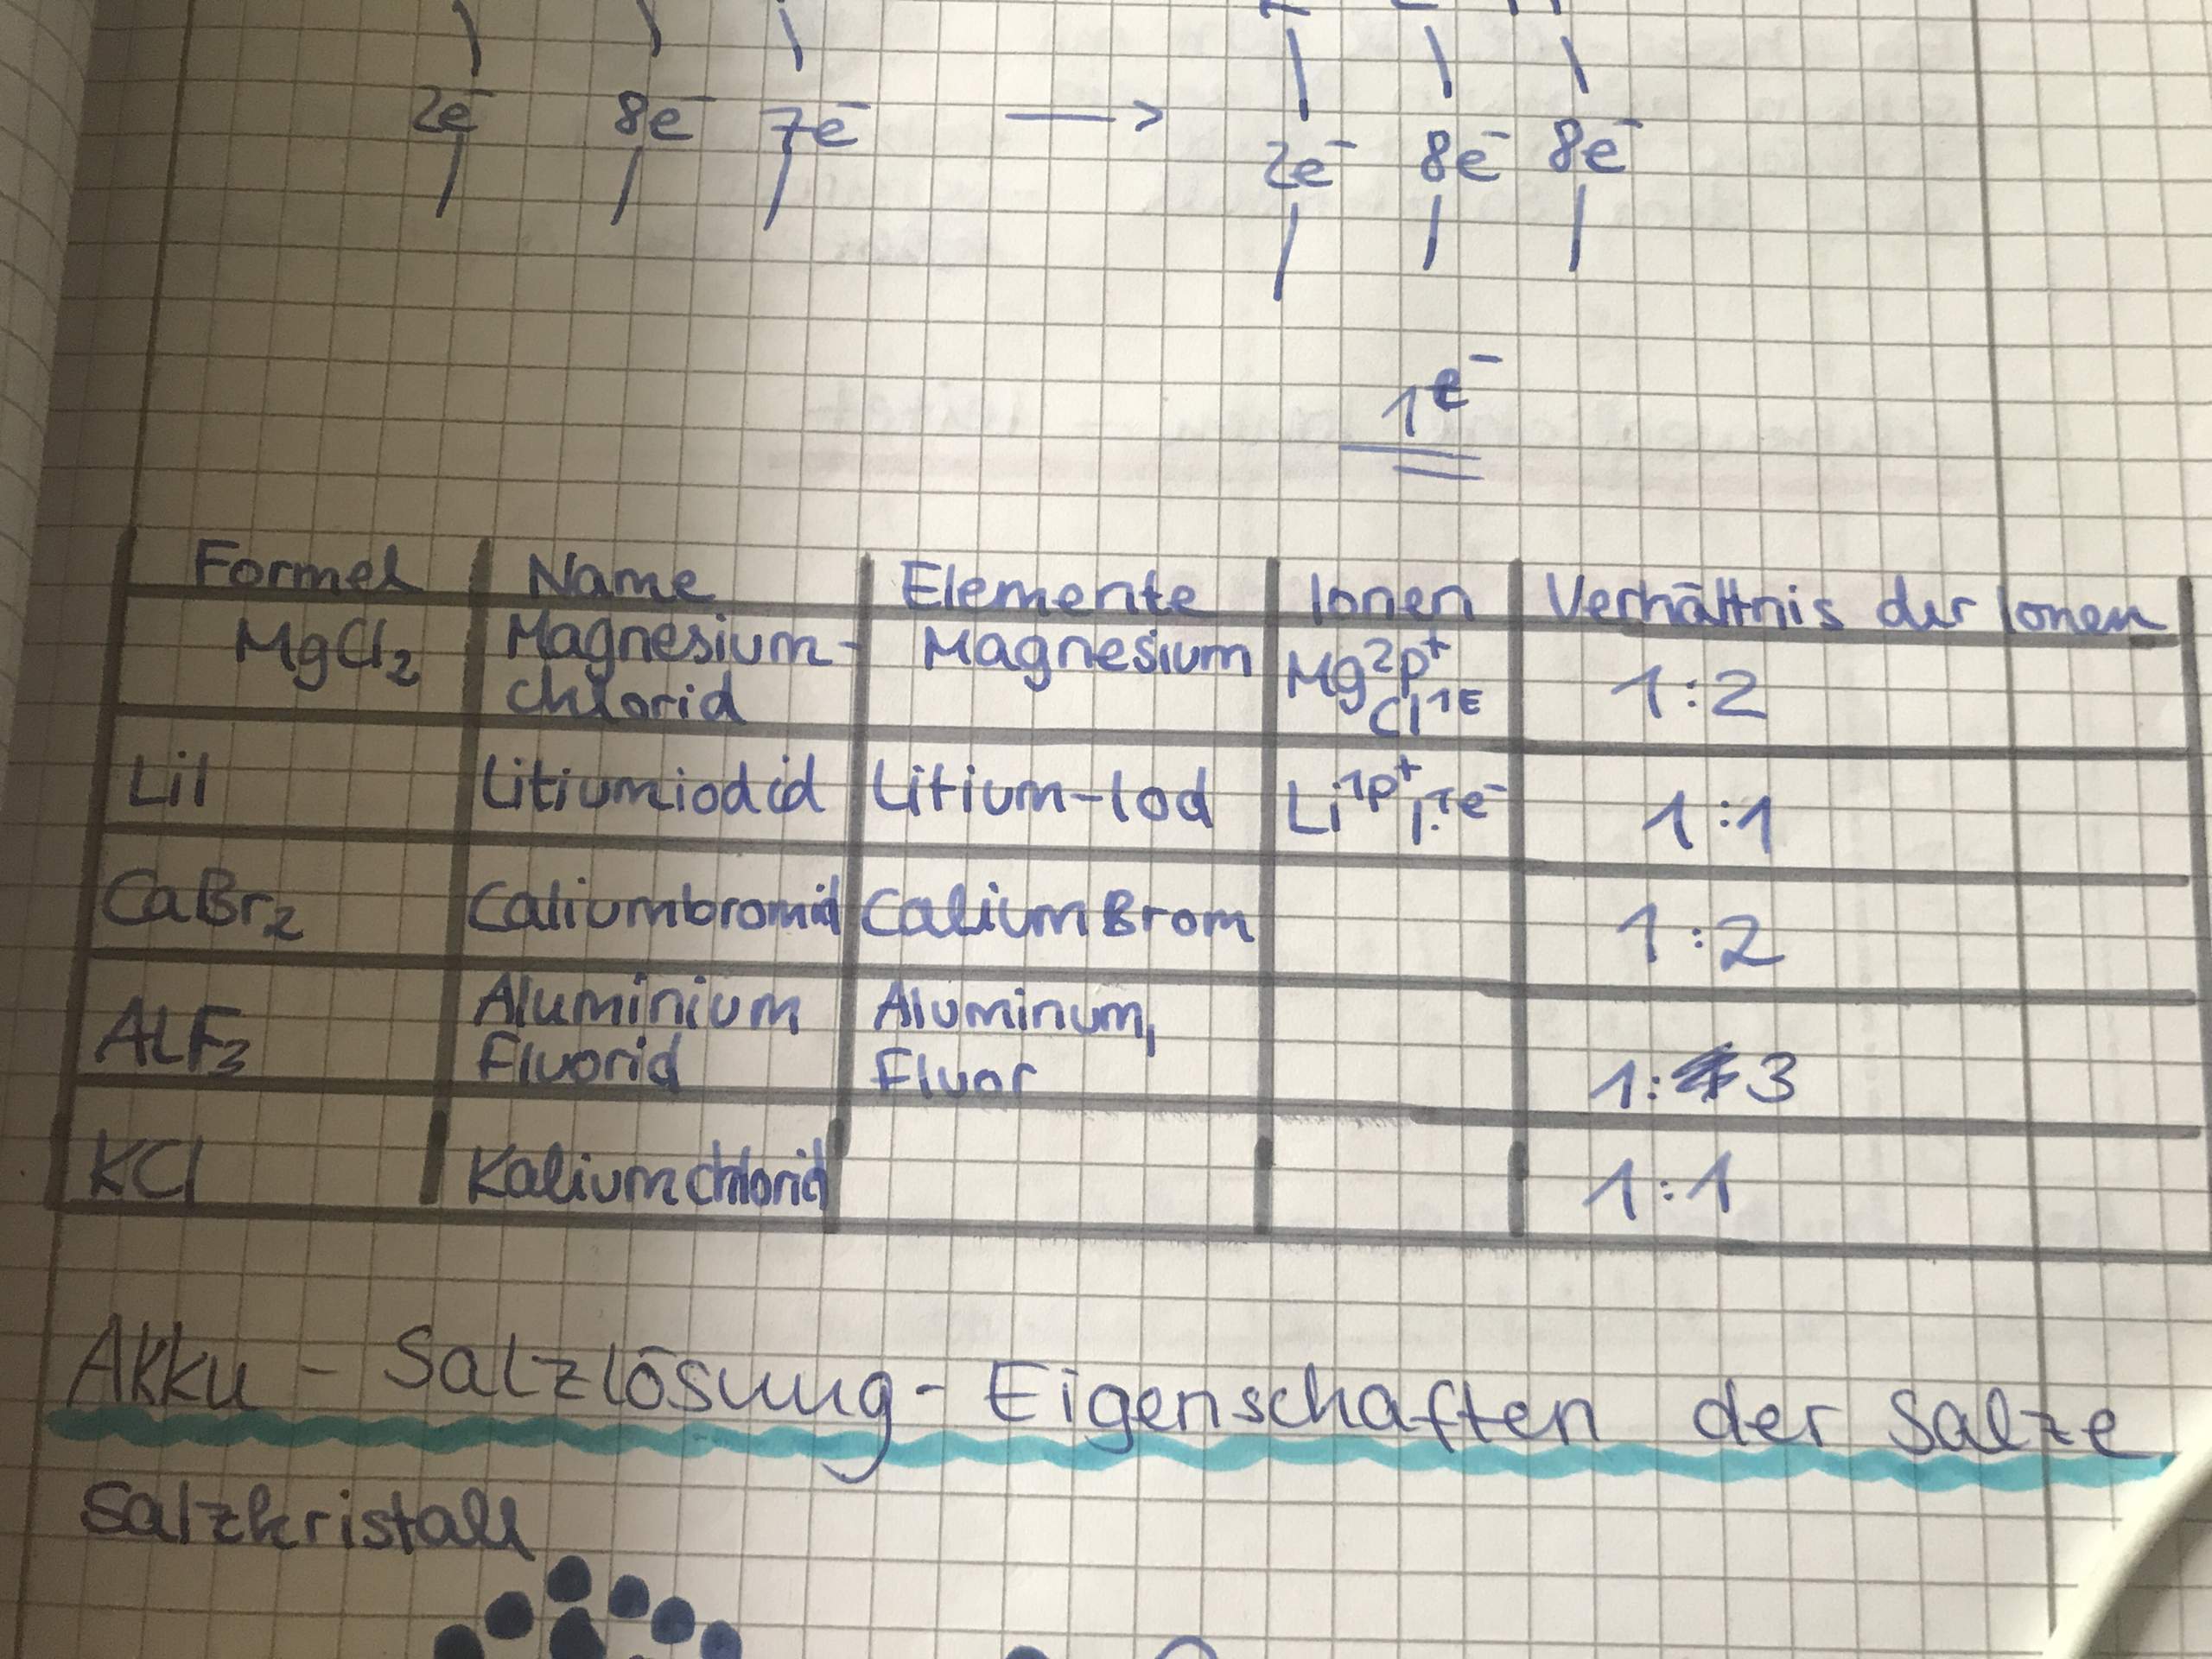 2e⁻ 8e⁻ 7e⁻ → 2e⁻ 8e⁻ 8e⁻
1e⁻
Formel Name Elemente Ionen Verhältnis der Ionen
MgCl₂ Magnesium-
chlorid Magnesium Mg²ᵖ⁺
Cl¹ᴱ 1:2
LiI Litiumiodid Litium-Iod Li¹ᵖ⁺ I¹ᵉ⁻ 1:1
CaBr₂ Caliumbromid Calium Brom 1:2
ALF₃ Aluminium
Fluorid Aluminum,
Fluor 1:3
KCl Kaliumchlorid 1:1
Akku - Salzlösung - Eigenschaften der Salze
Salzkristall